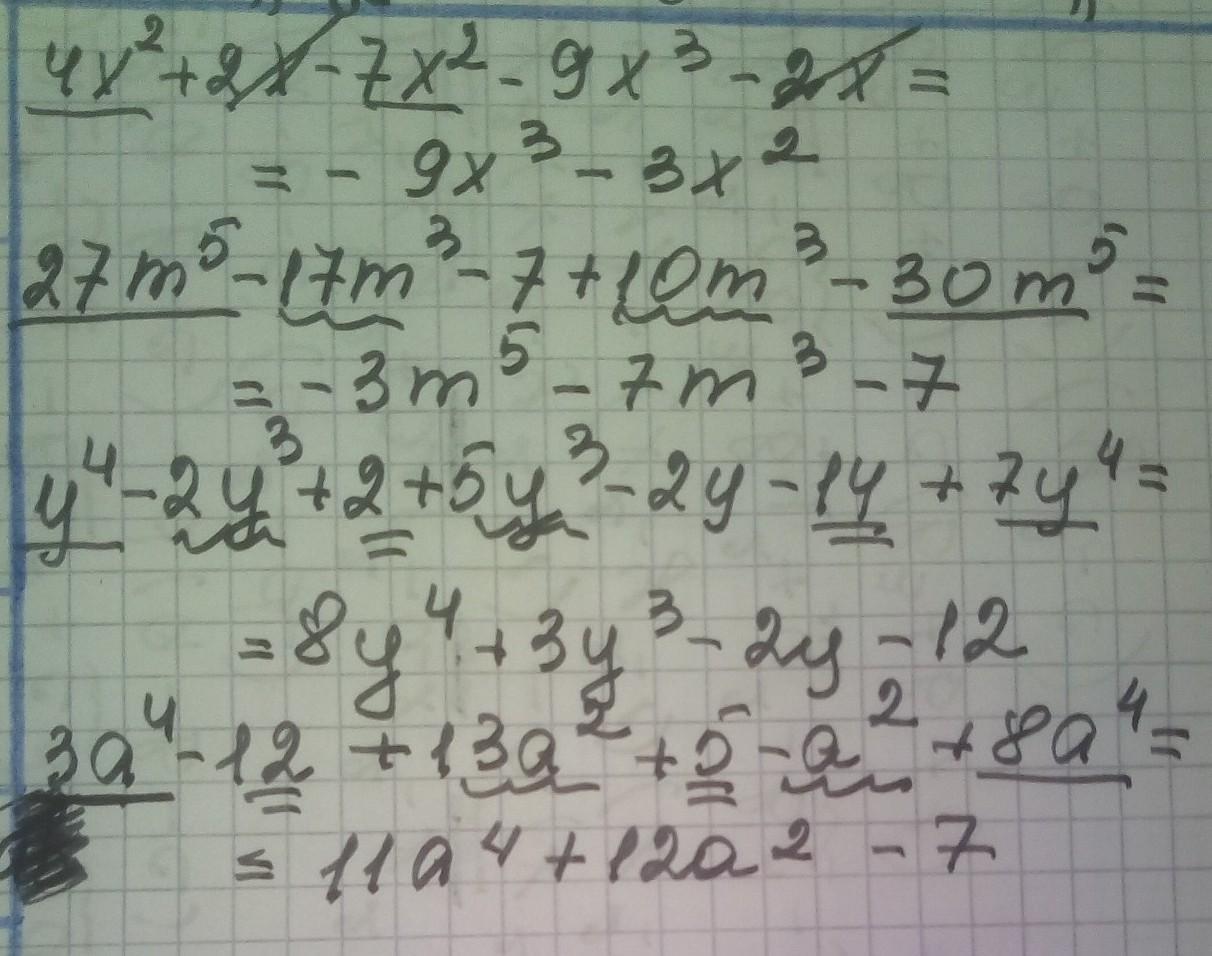 4x² + 2x - 7x² - 9x³ - 2x =
= - 9x³ - 3x²
27m⁵ - 17m³ - 7 + 10m³ - 30m⁵ =
= - 3m⁵ - 7m³ - 7
y⁴ - 2y³ + 2 + 5y³ - 2y - 14 + 7y⁴ =
= 8y⁴ + 3y³ - 2y - 12
3a⁴ - 12 + 13a² + 5 - a² + 8a⁴ =
= 11a⁴ + 12a² - 7